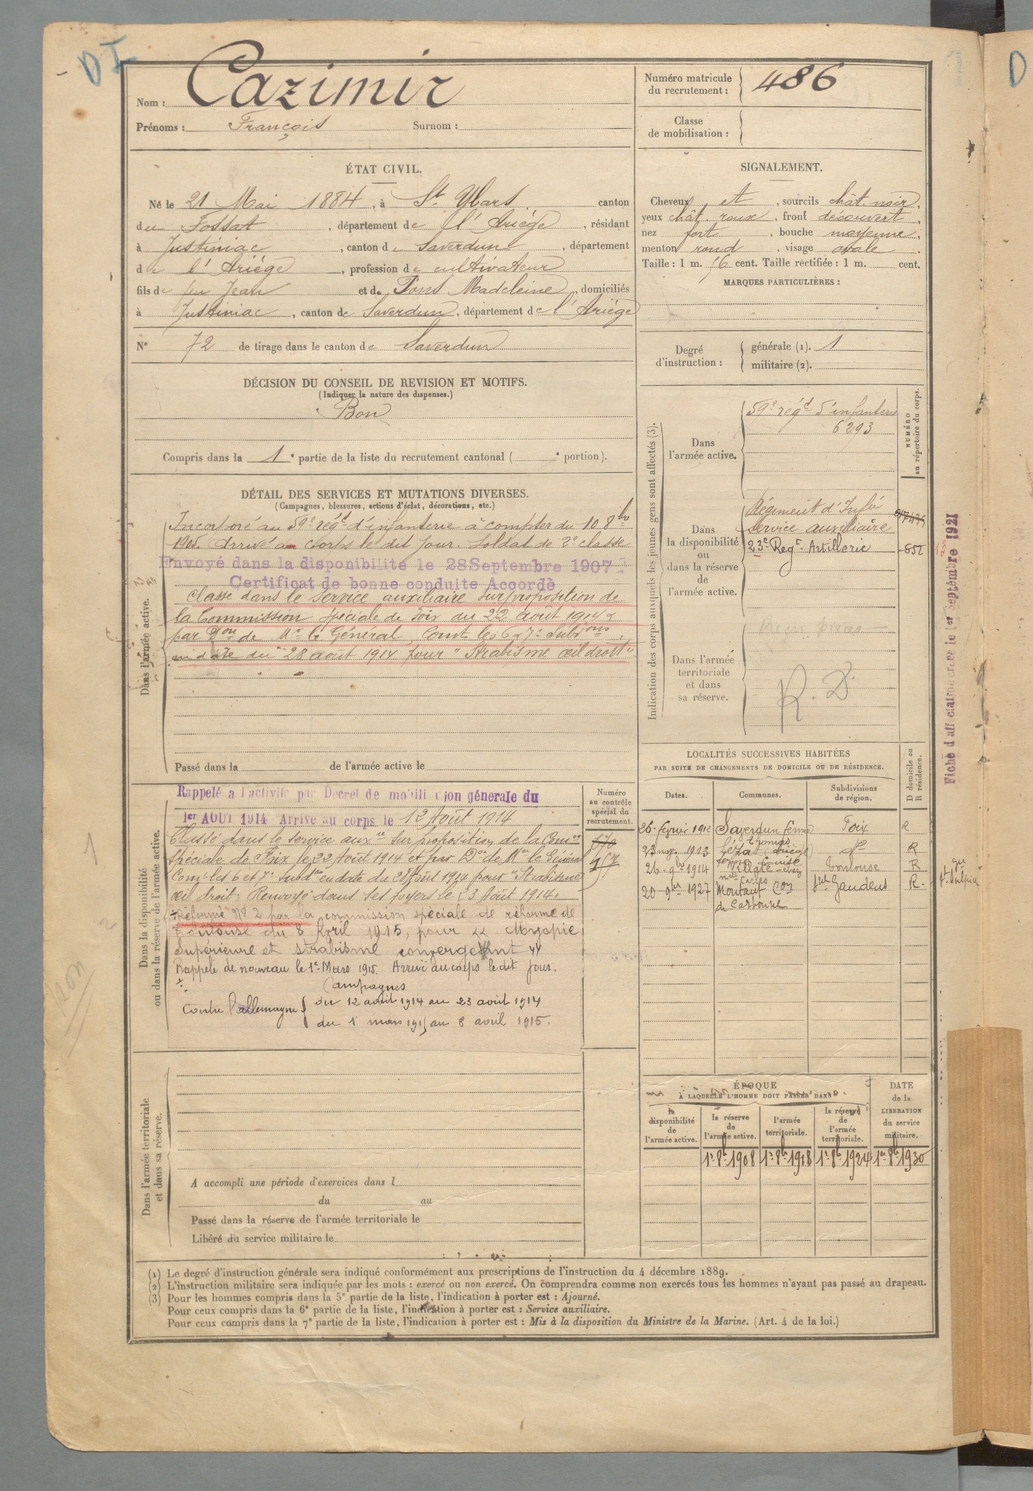 D I
Nom : Cazimir
Prénoms : François Surnom :
Numéro matricule du recrutement : 486
Classe de mobilisation :
ÉTAT CIVIL.
Né le 21 Mai 1884, à St Ybars, canton
du Fossat, département de l'Ariège, résidant
à Justiniac, canton de Saverdun, département
de l'Ariège, profession de cultivateur
fils de feu Jean et de Pons Madeleine, domiciliés
à Justiniac, canton de Saverdun, département de l'Ariège
N° 72 de tirage dans le canton de Saverdun
SIGNALEMENT.
Cheveux et, sourcils chât. noir,
yeux chât. roux, front découvert,
nez fort, bouche moyenne,
menton rond, visage ovale.
Taille : 1 m. 76 cent. Taille rectifiée : 1 m. cent.
MARQUES PARTICULIÈRES :
DÉCISION DU CONSEIL DE REVISION ET MOTIFS.
(Indiquez la nature des dispenses.)
Bon
Compris dans la 1e partie de la liste du recrutement cantonal ( e portion).
Degré d'instruction :
générale (1). 1
militaire (2).
DÉTAIL DES SERVICES ET MUTATIONS DIVERSES.
(Campagnes, blessures, actions d'éclat, décorations, etc.)
Dans l'armée active.
Incorporé au 59e régt d'infanterie à compter du 10 8bre
1905. Arrivé au corps le dit jour. Soldat de 2e classe
Envoyé dans la disponibilité le 28 Septembre 1907.
Certificat de bonne conduite Accordé
Classé dans le Service auxiliaire sur proposition de
la Commission Spéciale de Foix du 22 août 1914 &
par Don de Mr le Général Comdt les 6 & 7e Subdons
en date du 28 août 1914 pour "Strabisme œil droit".
Passé dans la de l'armée active le
Indication des corps auxquels les jeunes gens sont affectés (3).
NUMÉRO au répertoire du corps.
Dans l'armée active.
59e régt d'infanterie
6293
Dans la disponibilité ou dans la réserve de l'armée active.
Régiment d'Infie
Service auxiliaire
23e Regt Artillerie 852
Dans l'armée territoriale et dans sa réserve.
R. D.
Fiche d'affectation 1er Septembre 1921
Dans la disponibilité ou dans la réserve de l'armée active.
Rappelé à l'activité par Décret de mobilisation générale du
1er AOUT 1914 Arrivé au corps le 12 Août 1914
Classé dans le service auxre sur proposition de la Comon
Spéciale de Foix le 22 Août 1914 et par Don de Mr le Général
Comt les 6 et 7e Subd. en date du 28 août 1914 pour "Strabisme
œil droit". Renvoyé dans ses foyers le 23 Août 1914.
Réformé N° 2 par la commission spéciale de réforme de
Toulouse du 8 Avril 1915, pour " Myopie
Supérieure et strabisme convergent "
Rappelé de nouveau le 1er Mars 1915. Arrivé au corps le dit jour.
Campagnes
Contre l'allemagne du 12 août 1914 au 23 août 1914
du 1er mars 1915 au 8 avril 1915.
Numéro au contrôle spécial du recrutement.
LOCALITÉS SUCCESSIVES HABITÉES
PAR SUITE DE CHANGEMENTS DE DOMICILE OU DE RÉSIDENCE.
Dates. Communes. Subdivisions de région. D domicile ou R résidence.
Saverdun Foix R
1913 Lézat R
1914 Toulouse R
20 9bre 1927 Montaut Con de Carbonne St Gaudens R
ÉPOQUE
À LAQUELLE L'HOMME DOIT PASSER DANS
la disponibilité de l'armée active.
la réserve de l'armée active.
l'armée territoriale.
la réserve de l'armée territoriale.
DATE de la LIBÉRATION du service militaire.
1er 8bre 1908 1er 8bre 1918 1er 8bre 1924 1er 8bre 1930
Dans l'armée territoriale et dans sa réserve.
A accompli une période d'exercices dans l
du au
Passé dans la réserve de l'armée territoriale le
Libéré du service militaire le
(1) Le degré d'instruction générale sera indiqué conformément aux prescriptions de l'instruction du 4 décembre 1889.
(2) L'instruction militaire sera indiquée par les mots : exercé ou non exercé. On comprendra comme non exercés tous les hommes n'ayant pas passé au drapeau.
(3) Pour les hommes compris dans la 5e partie de la liste, l'indication à porter est : Ajourné.
Pour ceux compris dans la 6e partie de la liste, l'indication à porter est : Service auxiliaire.
Pour ceux compris dans la 7e partie de la liste, l'indication à porter est : Mis à la disposition du Ministre de la Marine. (Art. 4 de la loi.)